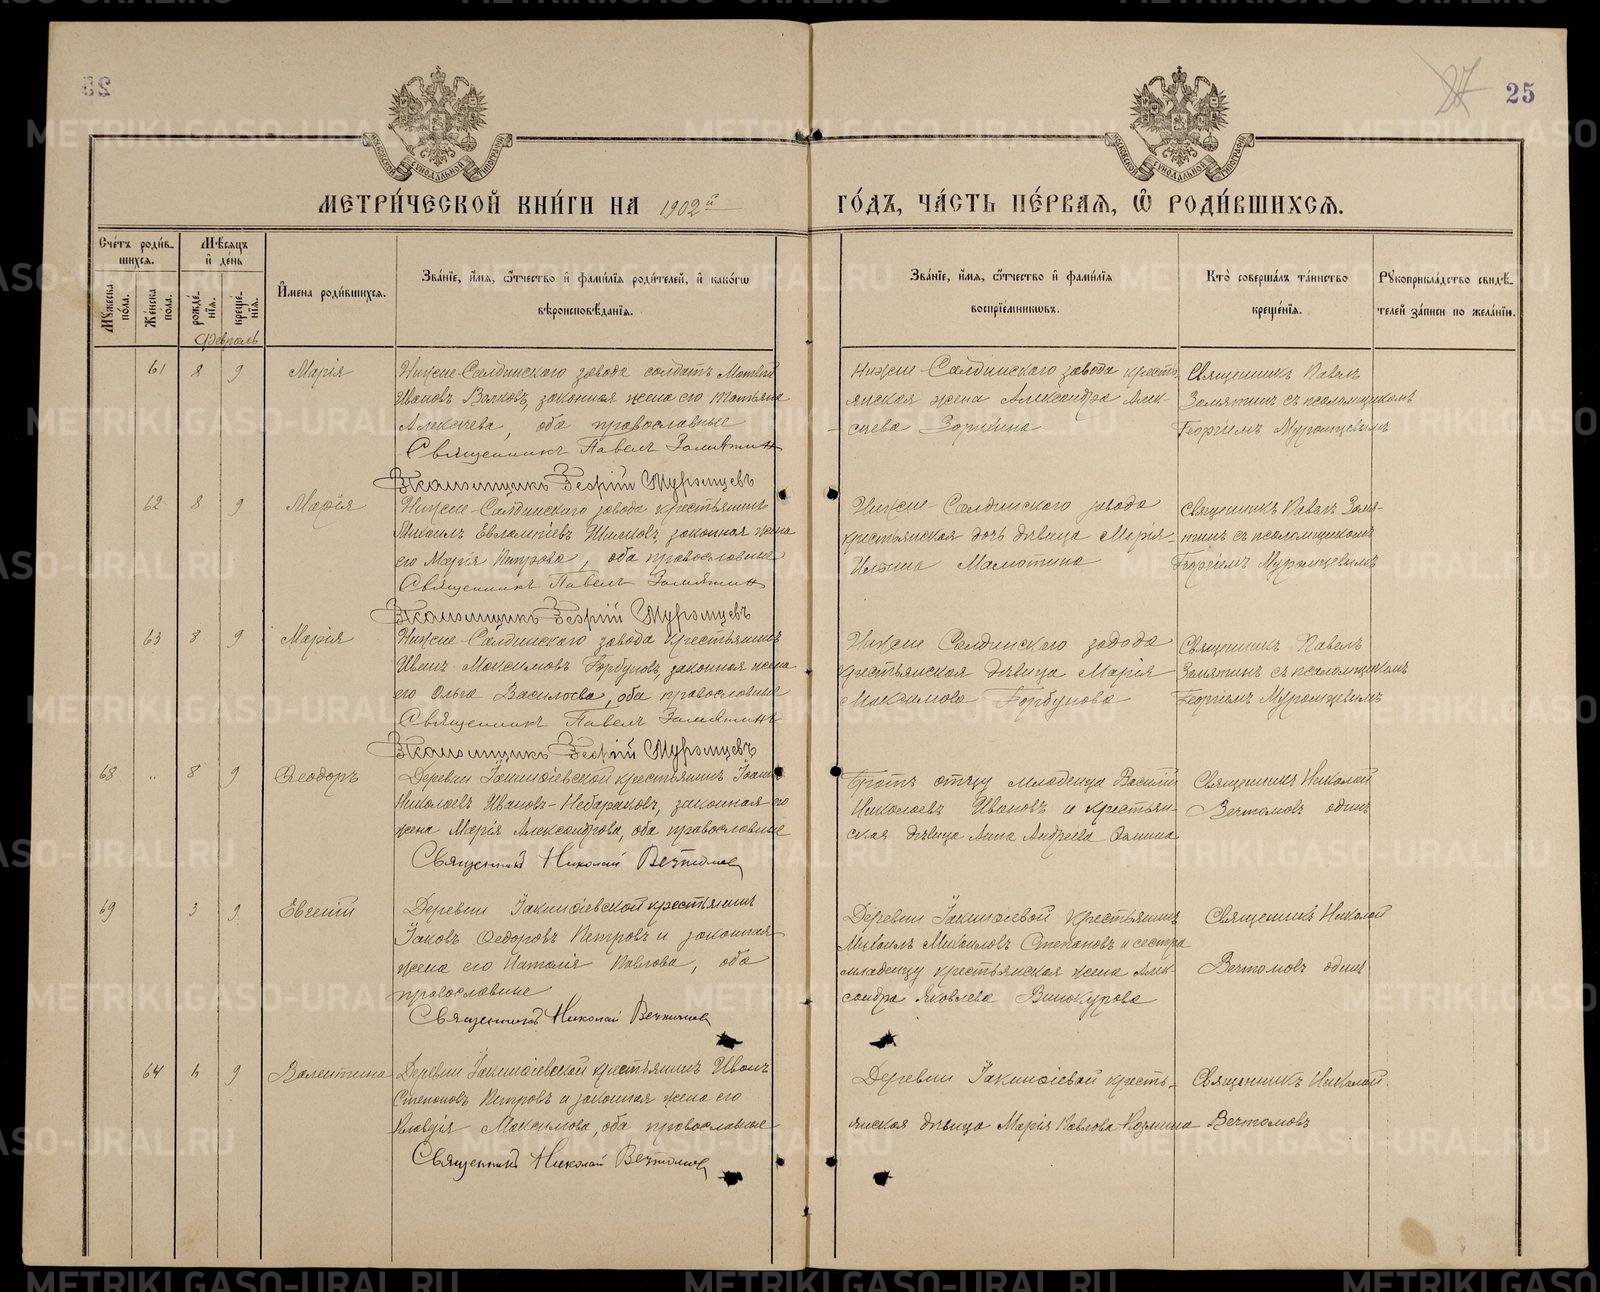 25
27
25
МЕТРИ́ЧЕСКОЙ КНИ́ГИ НА 1902й ГО́ДЪ, ЧА́СТЬ ПЕ́РВАЯ, Ѡ РОДИ́ВШИХСЯ.
Сче́тъ роди́в-
шихся.
Мѣ́сяцъ
и҆ де́нь
Мꙋ́жеска по́ла.
Же́нска по́ла.
рожде́-нїѧ.
креще́-нїѧ.
И҆мена роди́вшихся.
Зва́нїе, и҆́мѧ, ѻ҆́тчество и҆ фами́лїѧ роди́телей, и҆ како́гѡ
вѣроисповѣ́данїѧ.
Зва́нїе, и҆́мѧ, ѻ҆́тчество и҆ фами́лїѧ
воспрїе́мниковъ.
Кто̀ соверша́лъ та́инство
креще́нїѧ.
Рꙋкоприкла́дство свидѣ́-
телей за́писи по жела́нїю.
Февраль
61 8 9 Марія
Нижне-Салдинскаго завода солдатъ Матвѣй
Ивановъ Волковъ, законная жена его Татьяна
Алексѣева, оба православные
Священникъ Павелъ Замятин
Псаломщикъ Георгій Муромцевъ
Нижне-Салдинскаго завода кресть
янская жена Александра Алек-
сѣева Зорихина
Священникъ Павелъ
Замятинъ съ псаломщикомъ
Георгіемъ Муромцевымъ
62 8 9 Марія
Нижне-Салдинскаго завода крестьянинъ
Михаилъ Евлампіевъ законная жена
его Марія Петрова, оба православные
Священникъ Павелъ Замятин
Псаломщикъ Георгій Муромцевъ
Нижне-Салдинскаго завода
крестьянская дочь дѣвица Марія
Мамотина
Священникъ Павелъ Замя-
тинъ съ псаломщикомъ
Георгіемъ Муромцевымъ
63 8 9 Марія
Нижне-Салдинскаго завода крестьянинъ
Иванъ Максимовъ Горбуновъ, законная жена
его Ольга Васильева, оба православные
Священникъ Павелъ Замятинъ
Псаломщикъ Георгій Муромцевъ
Нижне Салдинскаго завода
крестьянская дѣвица Марія
Максимова Горбунова
Священникъ Павелъ
Замятинъ съ псаломщикомъ
Георгіемъ Муромцевымъ
68 " 8 9 Ѳеодоръ
Деревни Іакинѳіевской крестьянинъ Іоаннъ
Николаевъ Ивановъ-Небараковъ, законная его
жена Марія Александрова, оба православные
Священникъ Николай Вечтомов
Братъ отцу младенца Василій
Николаевъ Ивановъ и крестьян-
ская дѣвица Анна Андреева
Священникъ Николай
Вечтомовъ одинъ
69 3 9 Евгеній
Деревни Іакинѳіевской крестьянинъ
Іаковъ Ѳедоровъ Петровъ и законная
жена его Наталія Павлова, оба
православные
Священникъ Николай Вечтомов
Деревни Іакинѳіевой крестьянинъ
Михаилъ Михаиловъ Степановъ и сестра
младенцу крестьянская жена Алек-
сандра Яковлева Винокурова
Священникъ Николай
Вечтомовъ одинъ
64 9 Валентина
Деревни Іакинѳіевской крестьянинъ Иванъ
Степановъ Петровъ и законная жена его
Клавдія Максимова, оба православные
Священникъ Николай Вечтомов
Деревни Іакинѳіевой кресть-
янская дѣвица Марія Павлова Козмина
Священникъ Николай
Вечтомовъ